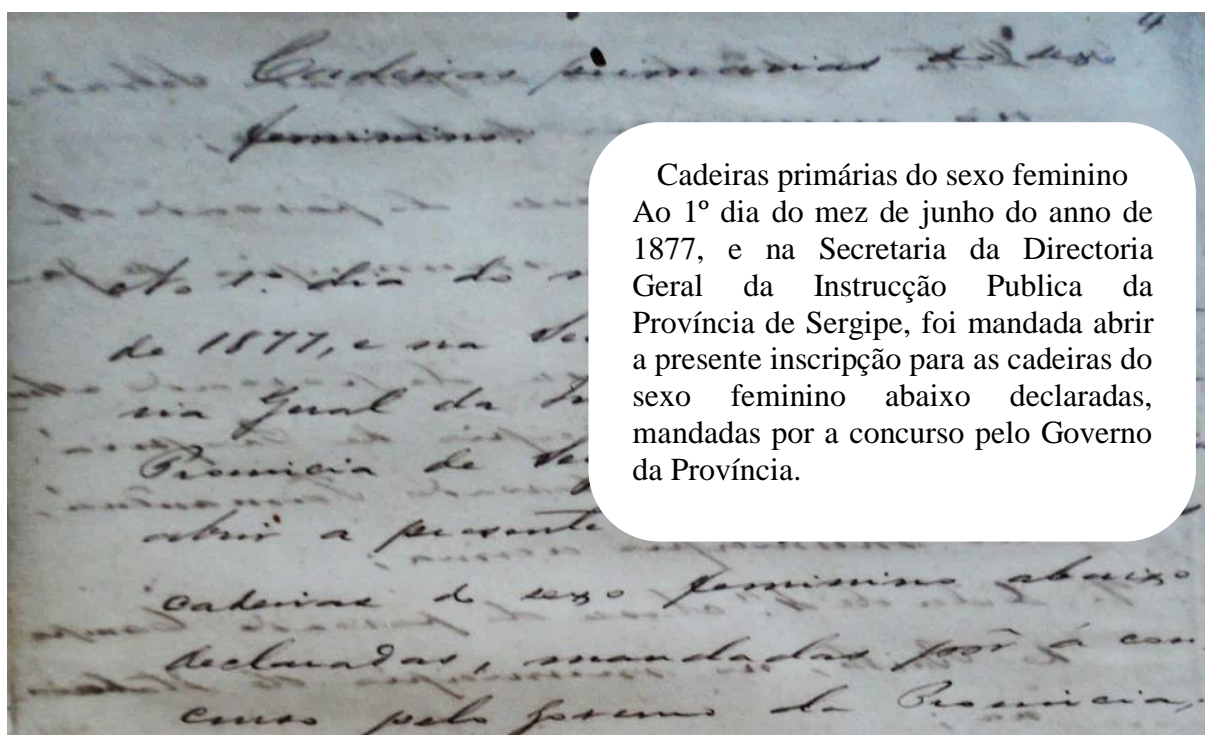 4
Cadeiras primarias do sexo
feminino.
Ao 1º dia do
de 1877, e na Sec
ria Geral da In
Provincia de Ser
abrir a presente
cadeiras do sexo feminino abaixo
declaradas, mandadas pôr á con
curso pelo Governo da Provincia,
Cadeiras primárias do sexo feminino
Ao 1º dia do mez de junho do anno de
1877, e na Secretaria da Directoria
Geral da Instrucção Publica da
Província de Sergipe, foi mandada abrir
a presente inscripção para as cadeiras do
sexo feminino abaixo declaradas,
mandadas por a concurso pelo Governo
da Província.